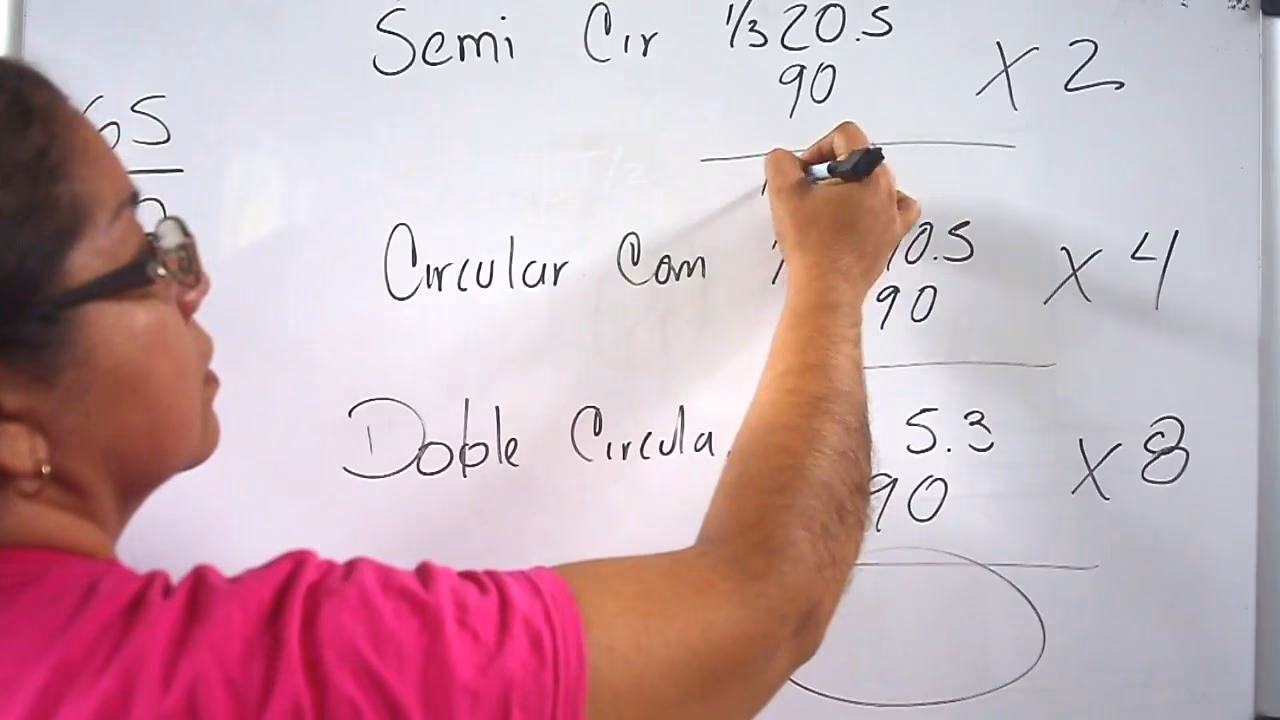 Semi Cir 1/3 20.5
90
X 2
65
Circular Com 10.5
90
X 4
Doble Circula
5.3
90
X 8